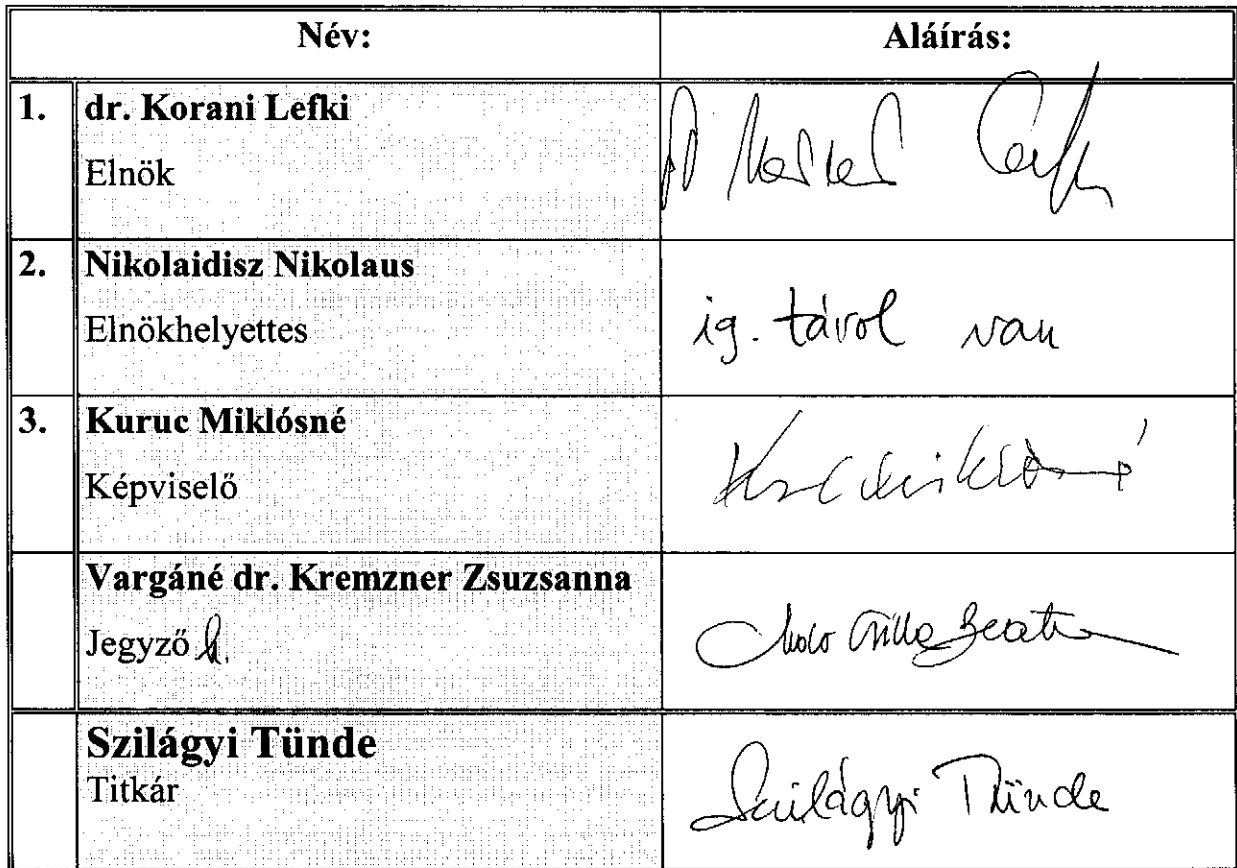 Név: Aláírás:
1. dr. Korani Lefki
Elnök
2. Nikolaidisz Nikolaus
Elnökhelyettes
ig. távol van
3. Kuruc Miklósné
Képviselő
Vargáné dr. Kremzner Zsuzsanna
Jegyző h.
Szilágyi Tünde
Titkár
Szilágyi Tünde